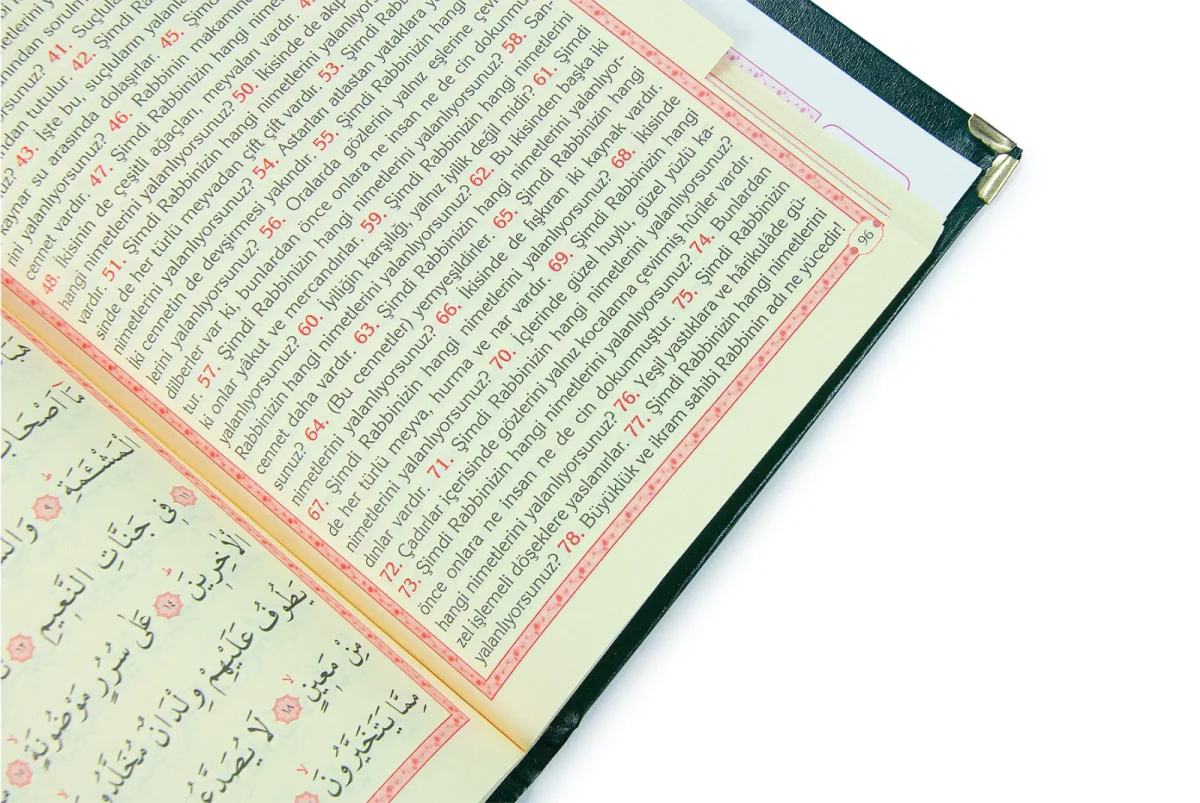 rsunuz? 41. Su
dan tutulur. 42. Şimdi
43. İşte bu, suçluların yalan
kaynar su arasında dolaşırlar. 45. Şimd
rini yalanlıyorsunuz? 46. Rabbinin makamın
cennet vardır. 47. Şimdi Rabbinizin hangi nimet
48. İkisinin de çeşitli ağaçları, meyvaları vardır.
hangi nimetlerini yalanlıyorsunuz? 50. İkisinde de akıp
vardır. 51. Şimdi Rabbinizin hangi nimetlerini yalanlıyorsu
sinde de her türlü meyvadan çift çift vardır. 53. Şimdi R
nimetlerini yalanlıyorsunuz? 54. Astarları atlastan yataklara ya
iki cennetin de devşirmesi yakındır. 55. Şimdi Rabbinizin hangi
lerini yalanlıyorsunuz? 56. Oralarda gözlerini yalnız eşlerine çev
dilberler var ki, bunlardan önce onlara ne insan ne de cin dokunmu
tur. 57. Şimdi Rabbinizin hangi nimetlerini yalanlıyorsunuz? 58. San-
ki onlar yâkut ve mercandırlar. 59. Şimdi Rabbinizin hangi nimetlerini
yalanlıyorsunuz? 60. İyiliğin karşılığı yalnız iyilik değil midir? 61. Şimdi
Rabbinizin hangi nimetlerini yalanlıyorsunuz? 62. Bu ikisinden başka iki
cennet daha vardır. 63. Şimdi Rabbinizin hangi nimetlerini yalanlıyor-
sunuz? 64. (Bu cennetler) yemyeşildirler. 65. Şimdi Rabbinizin hangi
nimetlerini yalanlıyorsunuz? 66. İkisinde de fışkıran iki kaynak vardır.
67. Şimdi Rabbinizin hangi nimetlerini yalanlıyorsunuz? 68. İkisinde
de her türlü meyva, hurma ve nar vardır. 69. Şimdi Rabbinizin hangi
nimetlerini yalanlıyorsunuz? 70. İçlerinde güzel huylu, güzel yüzlü ka-
dınlar vardır. 71. Şimdi Rabbinizin hangi nimetlerini yalanlıyorsunuz?
72. Çadırlar içerisinde gözlerini yalnız kocalarına çevirmiş hûriler vardır.
73. Şimdi Rabbinizin hangi nimetlerini yalanlıyorsunuz? 74. Bunlardan
önce onlara ne insan ne de cin dokunmuştur. 75. Şimdi Rabbinizin
hangi nimetlerini yalanlıyorsunuz? 76. Yeşil yastıklara ve hârikulâde gü-
zel işlemeli döşeklere yaslanırlar. 77. Şimdi Rabbinizin hangi nimetlerini
yalanlıyorsunuz? 78. Büyüklük ve ikram sahibi Rabbinin adı ne yücedir!
96
مَٓا اَصْحَابُ
الْمَشْـَٔمَةِ ٩ وَالسَّ
١١ فِي جَنَّاتِ النَّعِيمِ ١٢
الْاٰخِرِينَ ١٤ عَلٰى سُرُرٍ مَوْضُونَةٍ
يَطُوفُ عَلَيْهِمْ وِلْدَانٌ مُخَلَّدُو
مِنْ مَعِينٍ ١٨ لَا يُصَدَّعُ
مِمَّا يَتَخَيَّرُونَ